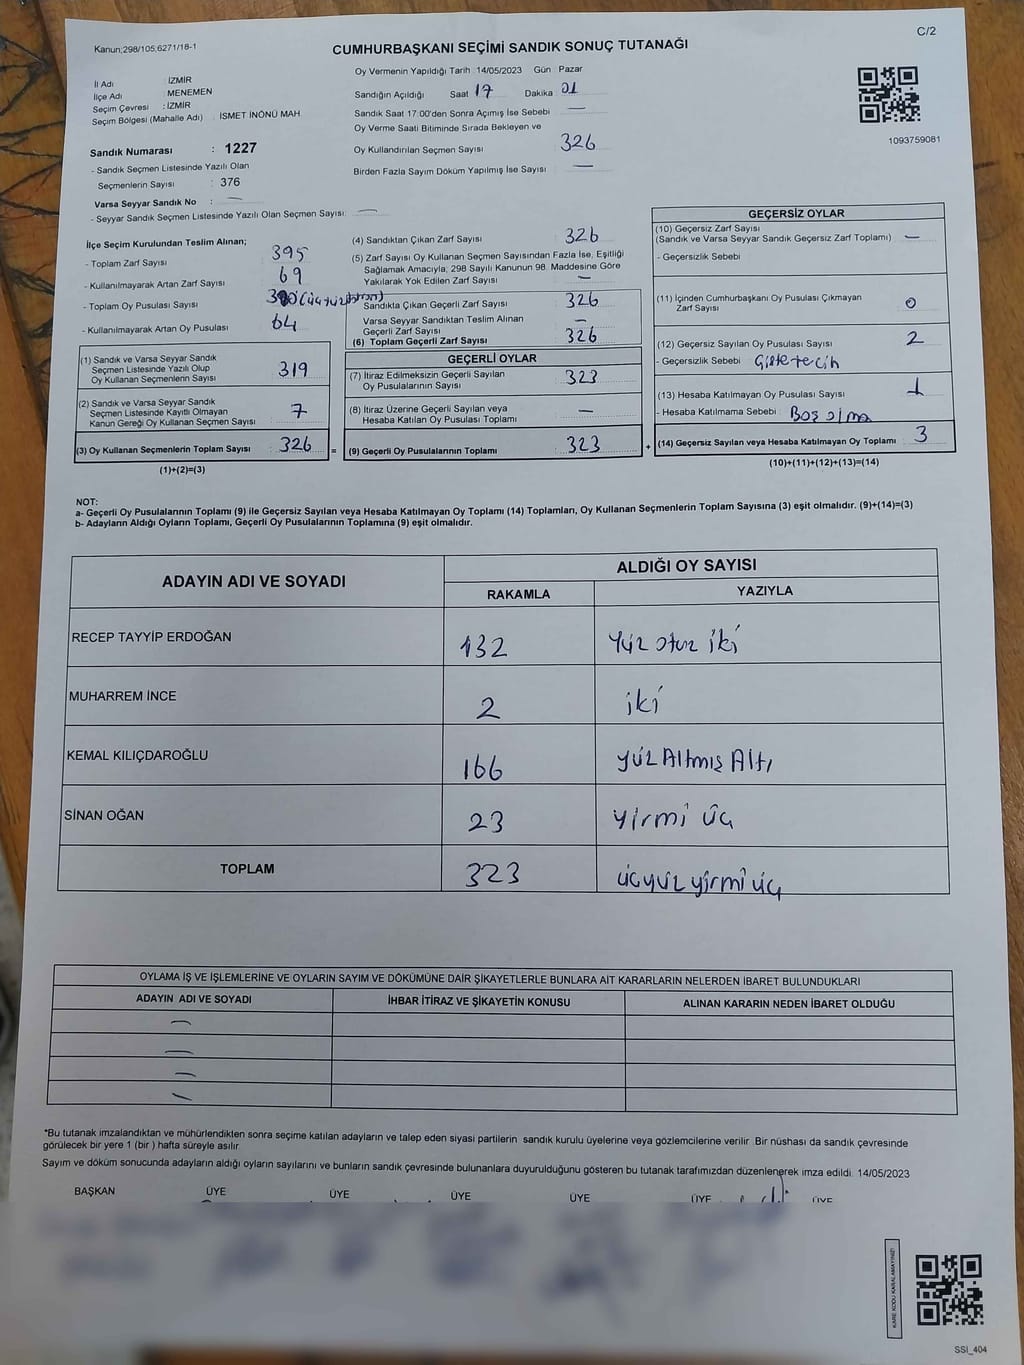 Kanun;298/105;6271/18-1
C/2
CUMHURBAŞKANI SEÇİMİ SANDIK SONUÇ TUTANAĞI
İl Adı : İZMİR
İlçe Adı : MENEMEN
Seçim Çevresi : İZMİR
Seçim Bölgesi (Mahalle Adı) : İSMET İNÖNÜ MAH.
Sandık Numarası : 1227
- Sandık Seçmen Listesinde Yazılı Olan
Seçmenlerin Sayısı : 376
Varsa Seyyar Sandık No : —
- Seyyar Sandık Seçmen Listesinde Yazılı Olan Seçmen Sayısı: —
Oy Vermenin Yapıldığı Tarih : 14/05/2023 Gün : Pazar
Sandığın Açıldığı Saat 17 Dakika 01
Sandık Saat 17:00'den Sonra Açımış İse Sebebi —
Oy Verme Saati Bitiminde Sırada Bekleyen ve
Oy Kullandırılan Seçmen Sayısı 326
Birden Fazla Sayım Döküm Yapılmış İse Sayısı —
1093759081
İlçe Seçim Kurulundan Teslim Alınan;
- Toplam Zarf Sayısı 395
- Kullanılmayarak Artan Zarf Sayısı 69
- Toplam Oy Pusulası Sayısı
- Kullanılmayarak Artan Oy Pusulası 64
(1) Sandık ve Varsa Seyyar Sandık
Seçmen Listesinde Yazılı Olup
Oy Kullanan Seçmenlerin Sayısı 319
(2) Sandık ve Varsa Seyyar Sandık
Seçmen Listesinde Kayıtlı Olmayan
Kanun Gereği Oy Kullanan Seçmen Sayısı 7
(3) Oy Kullanan Seçmenlerin Toplam Sayısı 326 =
(1)+(2)=(3)
(4) Sandıktan Çıkan Zarf Sayısı 326
(5) Zarf Sayısı Oy Kullanan Seçmen Sayısından Fazla İse, Eşitliği
Sağlamak Amacıyla, 298 Sayılı Kanunun 98. Maddesine Göre
Yakılarak Yok Edilen Zarf Sayısı —
Sandıkta Çıkan Geçerli Zarf Sayısı 326
Varsa Seyyar Sandıktan Teslim Alınan
Geçerli Zarf Sayısı —
(6) Toplam Geçerli Zarf Sayısı 326
GEÇERLİ OYLAR
(7) İtiraz Edilmeksizin Geçerli Sayılan
Oy Pusulalarının Sayısı 323
(8) İtiraz Üzerine Geçerli Sayılan veya
Hesaba Katılan Oy Pusulası Toplamı —
(9) Geçerli Oy Pusulalarının Toplamı 323 +
GEÇERSİZ OYLAR
(10) Geçersiz Zarf Sayısı
(Sandık ve Varsa Seyyar Sandık Geçersiz Zarf Toplamı) —
- Geçersizlik Sebebi
(11) İçinden Cumhurbaşkanı Oy Pusulası Çıkmayan
Zarf Sayısı 0
(12) Geçersiz Sayılan Oy Pusulası Sayısı 2
- Geçersizlik Sebebi
(13) Hesaba Katılmayan Oy Sayısı 1
- Hesaba Katılmama Sebebi : Boş olma
(14) Geçersiz Sayılan veya Hesaba Katılmayan Oy Toplamı 3
(10)+(11)+(12)+(13)=(14)
NOT:
a- Geçerli Oy Pusulalarının Toplamı (9) ile Geçersiz Sayılan veya Hesaba Katılmayan Oy Toplamı (14) Toplamları, Oy Kullanan Seçmenlerin Toplam Sayısına (3) eşit olmalıdır. (9)+(14)=(3)
b- Adayların Aldığı Oyların Toplamı, Geçerli Oy Pusulalarının Toplamına (9) eşit olmalıdır.
ADAYIN ADI VE SOYADI
ALDIĞI OY SAYISI
RAKAMLA YAZIYLA
RECEP TAYYİP ERDOĞAN 132 Yüz otuz iki
MUHARREM İNCE 2 iki
KEMAL KILIÇDAROĞLU 166 yüz Altmış Altı
SİNAN OĞAN 23 yirmi üç
TOPLAM 323 üçyüz yirmi üç
OYLAMA İŞ VE İŞLEMLERİNE VE OYLARIN SAYIM VE DÖKÜMÜNE DAİR ŞİKAYETLERLE BUNLARA AİT KARARLARIN NELERDEN İBARET BULUNDUKLARI
ADAYIN ADI VE SOYADI İHBAR İTİRAZ VE ŞİKAYETİN KONUSU ALINAN KARARIN NEDEN İBARET OLDUĞU
—
—
—
—
*Bu tutanak imzalandıktan ve mühürlendikten sonra seçime katılan adayların ve talep eden siyasi partilerin sandık kurulu üyelerine veya gözlemcilerine verilir. Bir nüshası da sandık çevresinde
görülecek bir yere 1 (bir ) hafta süreyle asılır.
Sayım ve döküm sonucunda adayların aldığı oyların sayılarını ve bunların sandık çevresinde bulunanlara duyurulduğunu gösteren bu tutanak tarafımızdan düzenlenerek imza edildi. 14/05/2023
BAŞKAN ÜYE ÜYE ÜYE ÜYE ÜYE ÜYE
KARE KODU KARALAMAYINIZ!
SSI_404